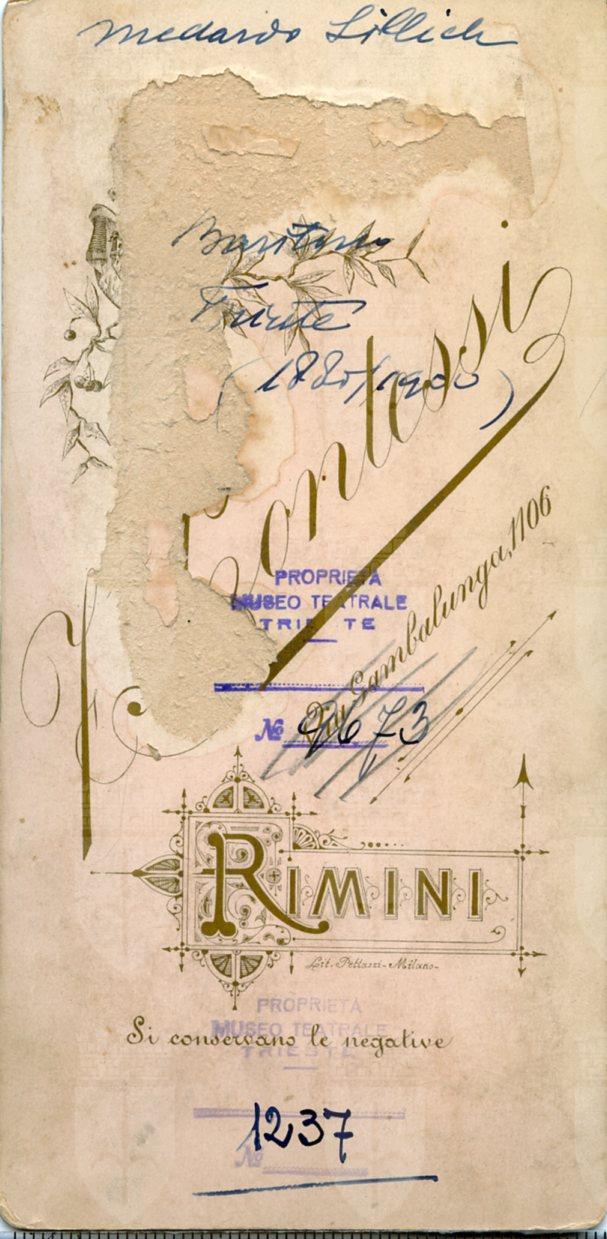 Medardo Sillich
Baritono
Trieste
(1880/1900)
Contessi
Via Gambalunga, 1106
PROPRIETÀ
MUSEO TEATRALE
TRIESTE
№ 9673
RIMINI
Lit. Pettazzi - Milano -
PROPRIETÀ
MUSEO TEATRALE
TRIESTE
Si conservano le negative
1237
№